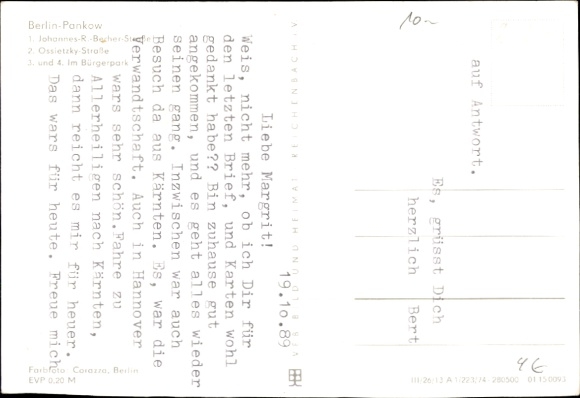 Berlin-Pankow
1. Johannes-R.-Becher-Straße
2. Ossietzky-Straße
3. und 4. Im Bürgerpark
10.-
19.10.89
Liebe Margrit!
Weis, nicht mehr, ob ich Dir für
den letzten Brief, und Karten wohl
gedankt habe?? Bin zuhause gut
angekommen, und es geht alles wieder
seinen gang. Inzwischen war auch
Besuch da aus Kärnten. Es, war die
Verwandtschaft. Auch in Hannover
wars sehr schön. Fahre zu
Allerheiligen nach Kärnten,
dann reicht es mir für heuer.
Das wars für heute. Freue mich
auf Antwort.
Es, grüsst Dich
herzlich Bert
4€
Farbfoto: Carazza, Berlin
EVP 0,20 M
III-26-13 A 1-223/74-280500 01 15 0093